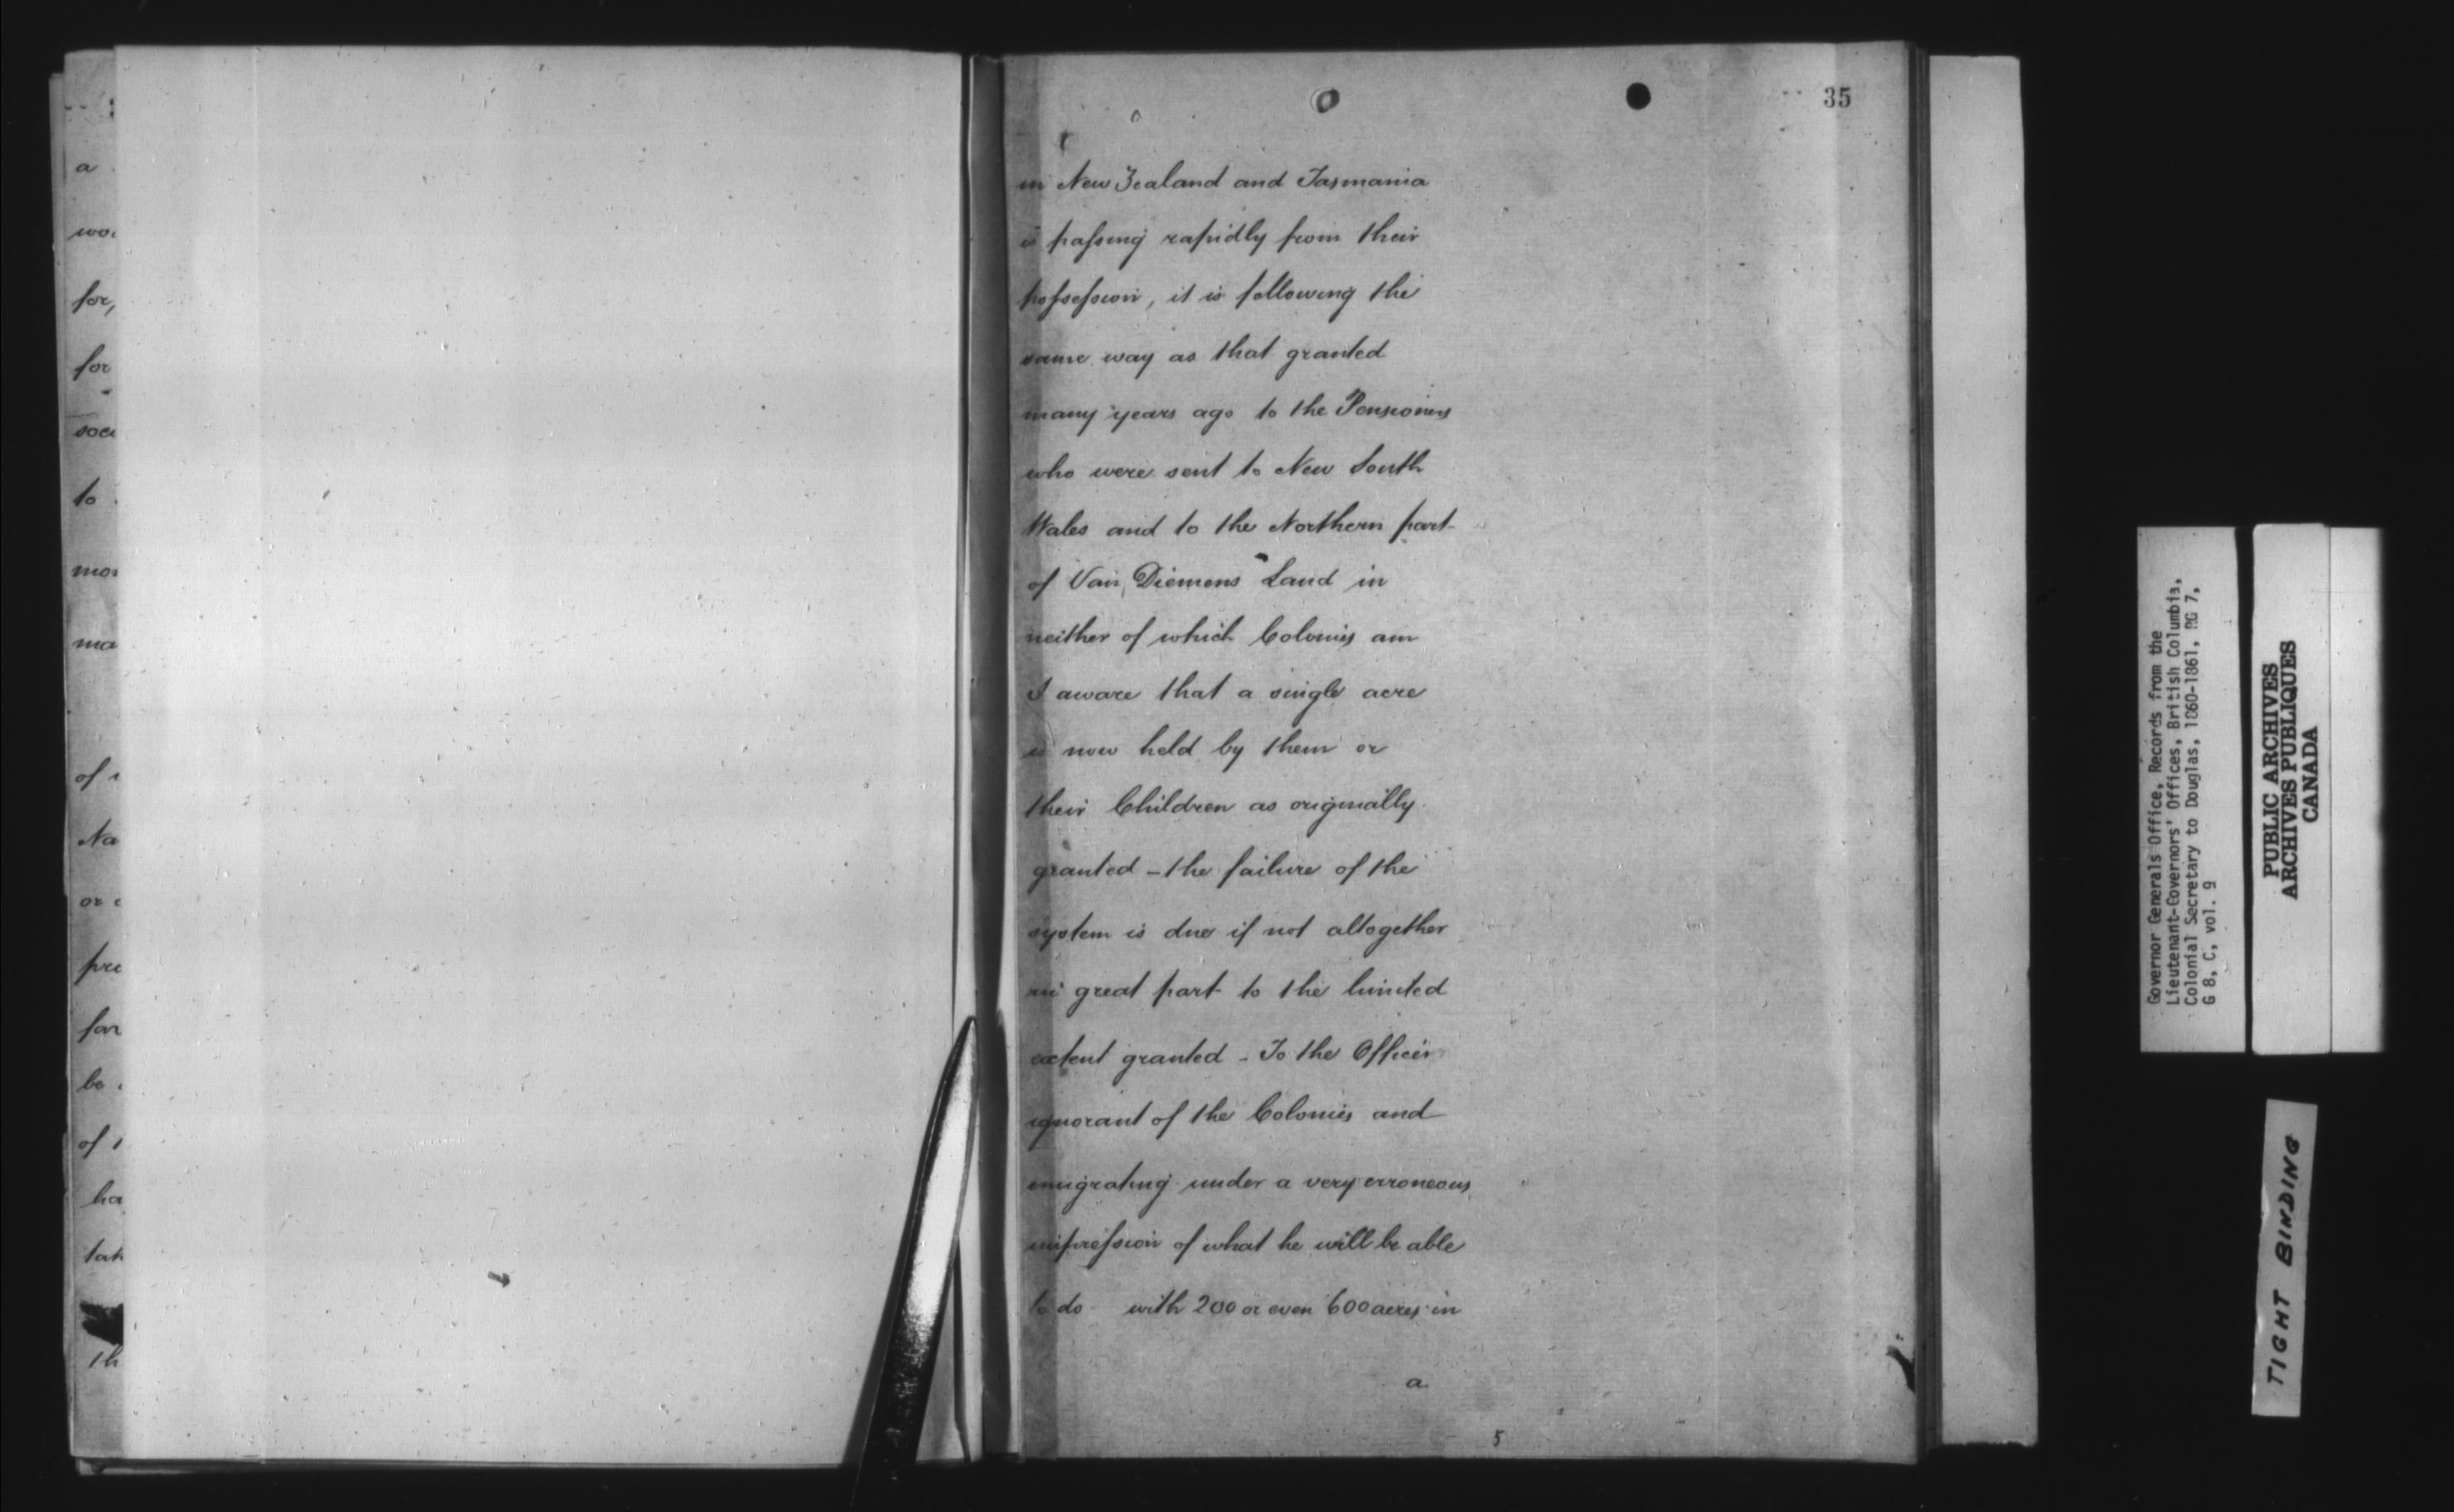 a
for,
for
to
of
Na
be
of
35
in New Zealand and Tasmania
is passing rapidly from their
possession, it is following the
same way as that granted
many years ago to the Pensioners
who were sent to New South
Wales and to the Northern part
of Van Diemens Land in
neither of which Colonies am
I aware that a single acre
is now held by them or
their Children as originally
granted – the failure of the
system is due if not altogether
in great part to the limited
extent granted – To the Officer
ignorant of the Colonies and
emigrating under a very erroneous
impression of what he will be able
to do with 200 or even 600 acres in
a
5
Governor Generals Office, Records from the
Lieutenant-Governors' Offices, British Columbia,
Colonial Secretary to Douglas, 1860-1861, RG 7,
G 8, C, vol. 9
PUBLIC ARCHIVES
ARCHIVES PUBLIQUES
CANADA
TIGHT BINDING